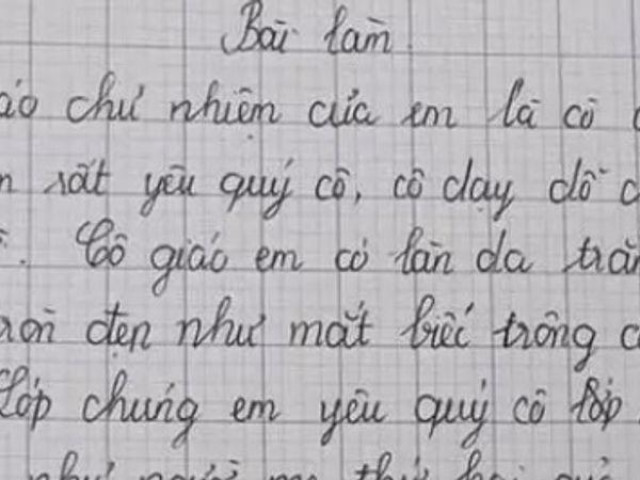 Bài làm
áo chủ nhiệm của em là cô
rất yêu quý cô, cô dạy dỗ
Cô giáo em có làn da trắn
tròn đen như mắt biếc trông
lớp chúng em yêu quý cô lớp
như người mẹ thứ hai